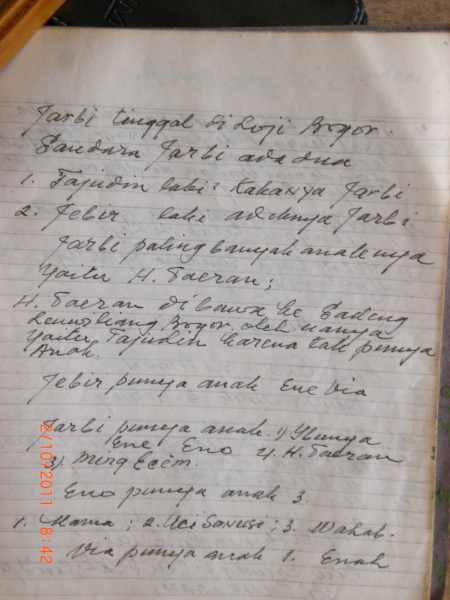 Jarbi tinggal di Loji Bogor.
Saudara Jarbi ada dua
1. Tajudin laki2 kakanya Jarbi
2. Jebir laki adiknya Jarbi
Jarbi paling banyak anaknya
yaitu H. Saeran;
H. Saeran dibawa ke Sadeng
Leuwiliang Bogor oleh uanya
yaitu Tajudin karena tak punya
Anak.
Jebir punya anak Ene Via
Jarbi punya anak. 1) Ibunya
Ene Eno 4. H. Saeran
3) Ming Ecem.
Eno punya anak 3.
1. Mama; 2. Uci Sanusi; 3. Wahab.
Via punya anak 1. Enah
2/10/2011 18:42